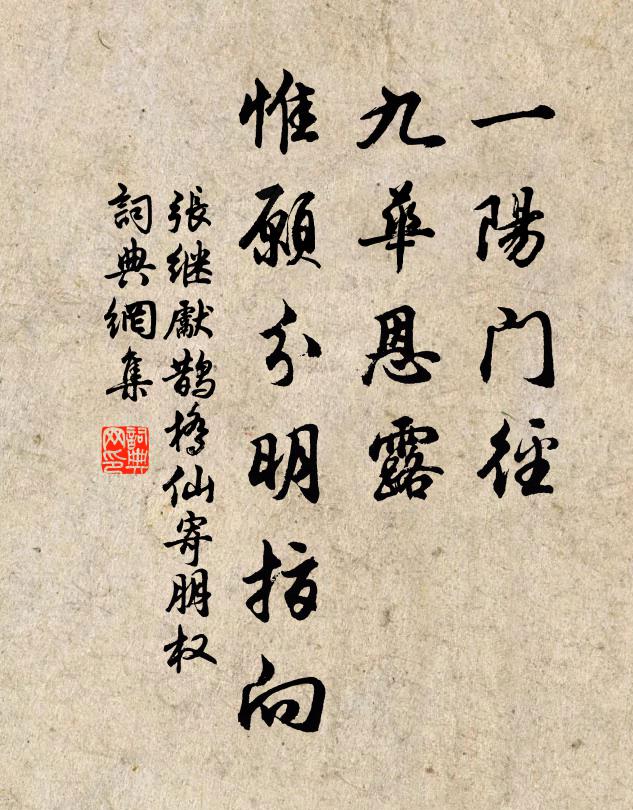 一陽门徑
九華恩露
惟願分明指向
張继獻鹊橋仙寄朋权
詞典網集
詞典网印